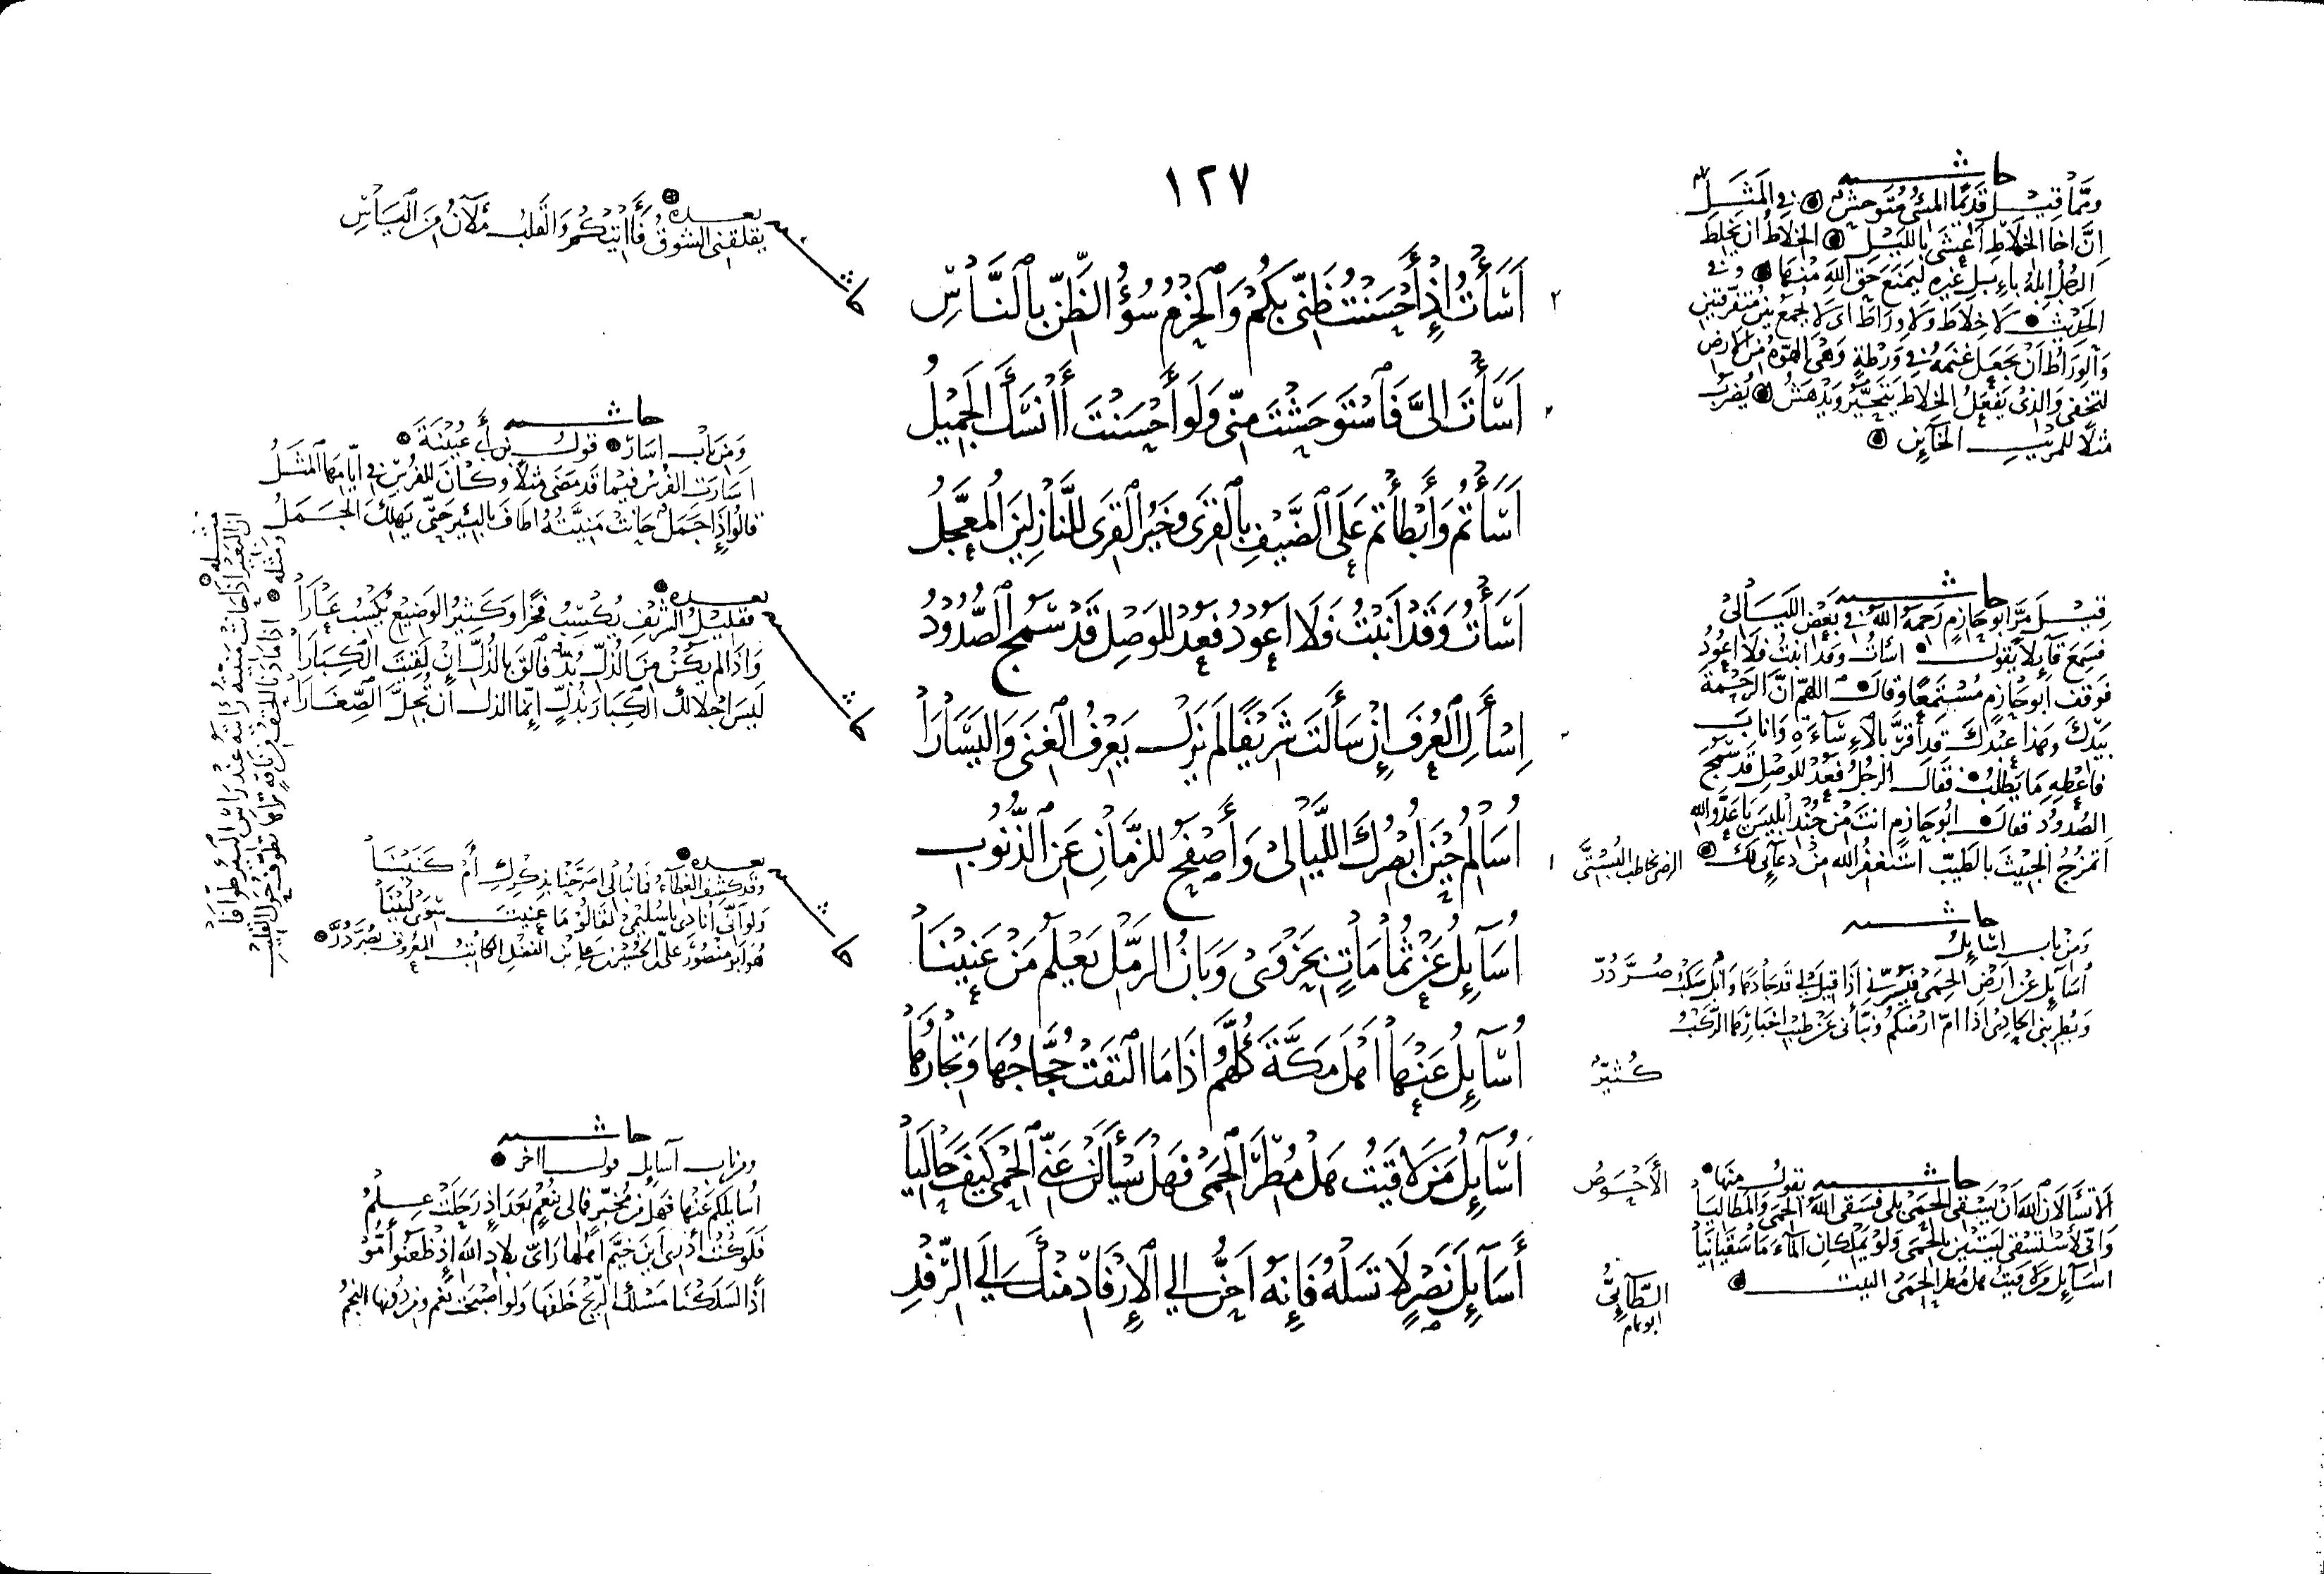 ١٢٧
أَسَأْتُ إِذْ أَحْسَنْتُ ظَنِّي بِكُمْ وَالْحَزْمُ سُوْءُ الظَّنِّ بِالنَّاسِ
أَسَأْتَ إِلَىَّ فَاسْتَوحَشْتَ مِنِّي وَلَو أَحْسَنْتَ أَانَسَكَ الْجَمِيْلُ
أَسَأْتُمْ وَأَبْطَأْتُمْ عَلَى الضَّيْفِ بِالْقِرَى وَخَيْرُ الْقِرَى لِلنَّازِلِيْنَ الْمُعَجَّلُ
أَسَأْتُ وَقَدْ أَنَبْتُ فَلَا أَعُوْدُ فَعُدْ لِلوَصْلِ قَدْ سَمُجَ الصُّدُوْدُ
اِسْأَلِ الْعُرْفَ إِنْ سَأَلْتَ شَرِيْفًا لَمْ يَزَلْ يَعْرِفُ الْغِنَى وَالْيَسَارَا
أُسَالِمُ حِيْنَ أُبْصِرُكَ اللَّيَالِيْ وَأَصْفَحُ لِلزَّمَانِ عَنِ الذُّنُوْبِ
أُسَآئِلُ عَنْ ثُمَامَاتٍ بِحُزْوَىْ وَبَانُ الرَّمْلِ يَعْلَمُ مَنْ عَنِيْنَا
أُسَآئِلُ عَنْهَا أَهْلَ مَكَّةَ كُلَّهُمْ إِذَا مَا الْتَقَتْ حُجَّاجُهَا وَتِجَارُهَا
أُسَآئِلُ مَنْ لَاقَيْتُ هَلْ مُطِرَ الْحِمَى فَهَلْ يَسْأَلَنْ عَنِّي الْحِمَى كَيْفَ حَالِيَا
أَسَآئِلَ نَصْرٍ لَا تَسَلْهُ فَإِنَّهُ أَحَنُّ إِلَى الْإِرْفَادِ مِنْكَ إِلَى الرِّفْدِ
الرضى يخاطب البستى
كُثَيِّرُ
الأَحْوَصُ
الطَّآئِىُّ
ابو تمام
حاشيه
ومما قيل قديما المسئ متوحش في المثل
إن اخا الخلاط أعشى بالليل الخلاط أن يخلط
الرجل ابله بابل غيره ليمنع حق الله منها وفي
الحديث لا خلاط ولا وراط اى لا يجمع بين متفرقين
والوراط أن يجعل غنمه في ورطة وهى الهوة من الارض
لتخفى والذى يفعل الخلاط يتحير ويدهش يضرب
مثلا للمريب الخآئن
حاشيه
قيل مر ابو حازم رحمه الله في بعض الليالى
فسمع قآئلا يقول اسأت وقد انبت فلا أعود
فوقف ابو حازم مستمعا وقال اللهم ان الرحمة
بيدك وهذا عبدك قد أقر بالاساءة وانا ب
فاعطه ما يطلب فقال الرجل فعد للوصل قد سمج
الصدود فقال ابو حازم انت من جند ابليس يا عدو الله
اتمزج الخبيث بالطيب استغفر الله من دعآئى لك
حاشيه
ومن باب اسآئل
أسآئل عن ارض الحمى فيسرني اذا قيل لي قد جادها وابل سكب صردر
ويطربني الحادى اذا ام ارضكم ونبأنى عن طيب اخبارها الركب
حاشيه يقول منها
الا تسألان الله أن يسقى الحمى بلى فسقى الله الحمى والمطاليا
وانى لأستسقى لثنتين بالحمى ولو يملكان الماء ما سقيانيا
اسآئل من لاقيت هل مطر الحمى البيت
بعده
يقلقني الشوق فأاتيكم والقلب ملآن من الياس
حاشيه
ومن باب اسار قول ابن أبي عيينة
اسارت الفرس فيما قد مضى مثلا وكان للفرس في ايامها المثل
قالوا إذا جمل حانت منيته اطاف بالبئر حتى يهلك الجمل
بعده
فقليل الشريف يكسب فخرا وكثير الوضيع يكسب عارا
واذا لم يكن من الذل بد فالق بالذل ان لقيت الكبارا
ليس اجلالك الكبار بذل إنما الذل أن تجل الصغارا
بعده
وقد كشف الغطاء فما نبالى اصرحنا بذكرك أم كنينا
ولو اني أنادى يا سليمى لقالوا ما عنيت سوى لبينا
هو ابو منصور على بن الحسين بن على بن الفضل الكاتب المعروف بصردر
حاشيه
ومن باب آسايل قول اخر
أسايلكم عنها فهل من مخبر فما لي بنعم بعد اذ رحلت علم
فلو كنت أدرى أين خيم اهلها واى بلاد الله إذ ظعنوا أموا
اذا لسلكنا مسلك الريح خلفها ولو اصبحت نعم ومن دونها النجم
مثله
ان البعير اذا حانت منيته
ومثله